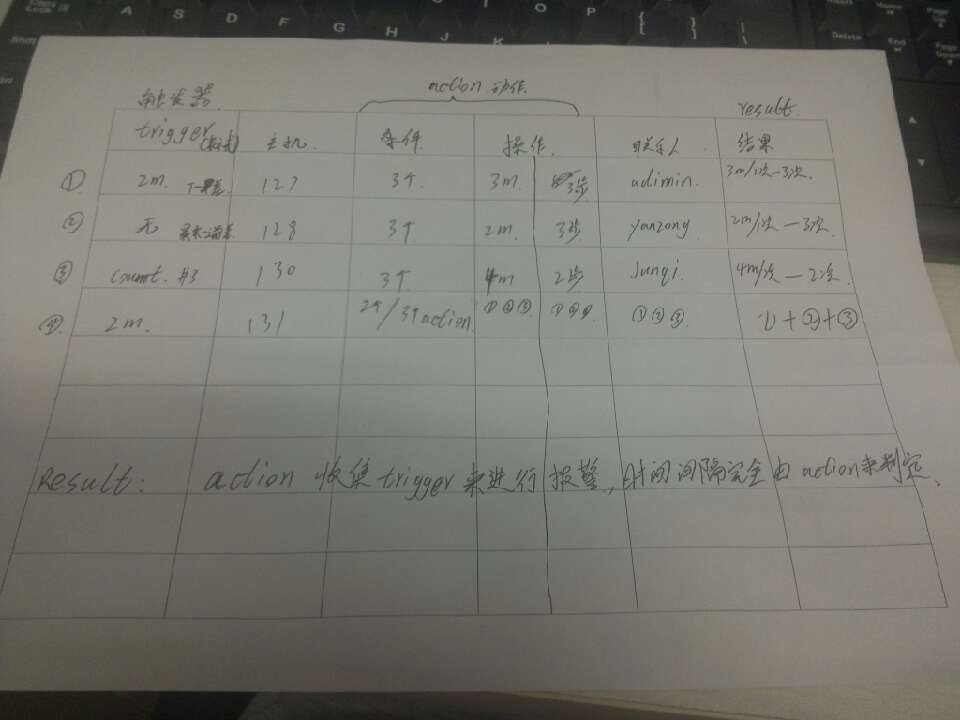 触发器 action 动作 result
trigger(表达式) 主机 条件 操作 联系人 结果
① 2m. 127 3个 3m 3步 adimin. 3m/次—3次.
② 无 128 3个 2m 3步 yanzong 2m/次—3次
③ count. #3 130 3个 4m 2步 Junqi. 4m/次—2次
④ 2m. 131 2个/3个action ①②③ ①②③ ①②③ ①+②+③
Result: action 收集trigger来进行报警,时间间隔完全由action来判定.